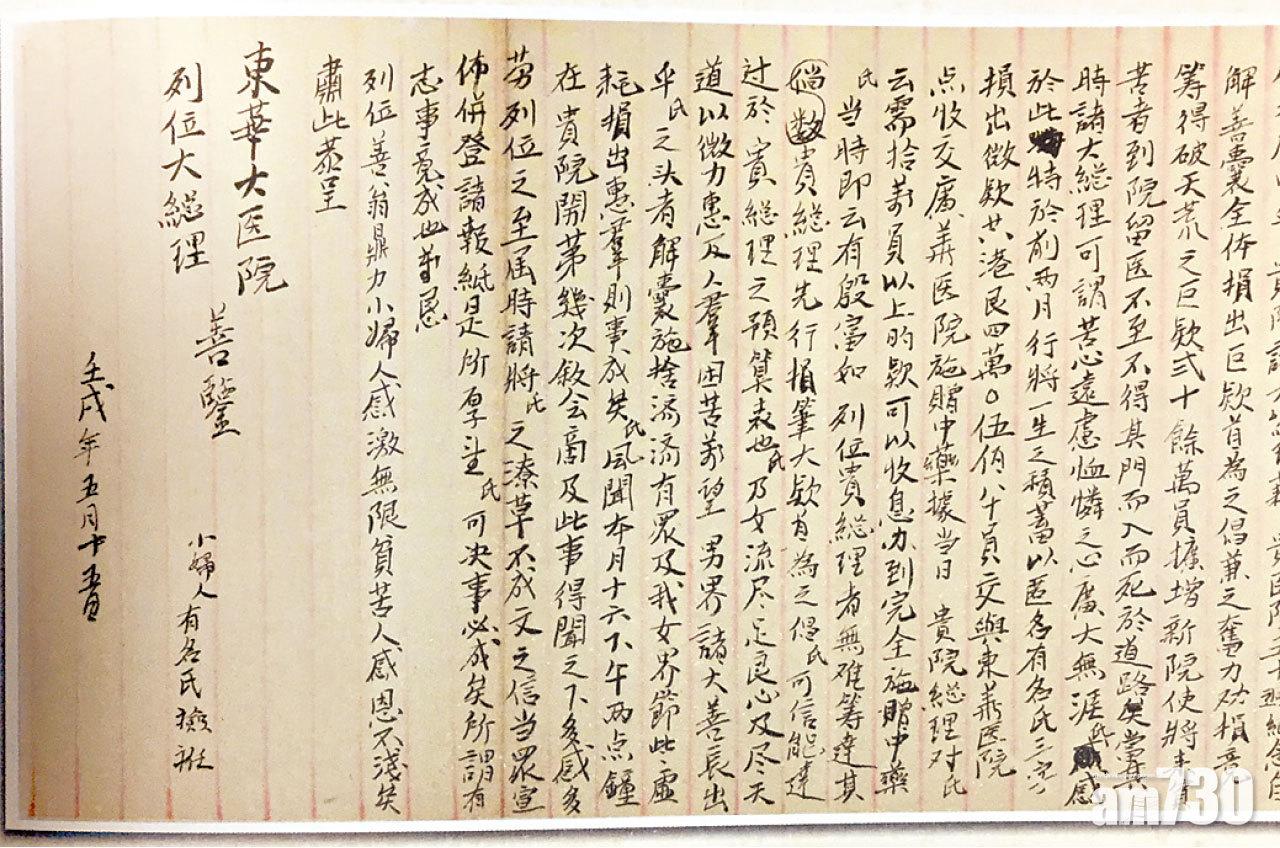 解善囊全体損出巨欵首為之倡兼之奮力劝損竟
筹得破天荒之巨欵弍十餘萬員擴增新院使將來貧
苦者到院留医不至不得其門而入而死於道路矣當其
時諸大総理可謂苦心遠慮恤憐之心廣大無涯氏感
於此特於前兩月行將一生之積蓄以匿名有名氏三字
損出微欵共港艮四萬０伍佰八十員交與東華医院
点收交廣華医院施贈中藥據当日 貴院総理对氏
云需拾萬員以上的欵可以收息办到完全施贈中藥
氏当時即云有殷富如 列位貴総理者無难筹達其
数貴総理先行損筆大欵首為之倡氏可信能達
过於貴総理之預算表也氏乃女流尽足良心及尽天
道以微力惠及人羣困苦萬望 男界諸大善長出
乎氏之头者解囊施捨济济有眾及我女界節些虛
耗損出惠羣則事成矣氏风聞夲月十六下午两点鐘
在 貴院開第幾次敘会商及此事得聞之下多感多
劳列位之至届時請將氏之潦草不成文之信当眾宣
佈併登諸報紙是所厚望氏可决事必成矣所謂有
志事竟成也萬恳
列位善翁鼎力小婦人感激無限貧苦人感恩不淺矣
肅此恭呈
東華大医院
列位大総理 善鑒
小婦人有名氏 襝衽
壬戌年五月十五日
am730